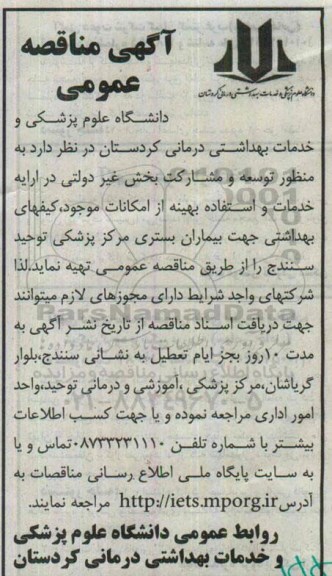 آگهی مناقصه
عمومی
دانشگاه علوم پزشکی و خدمات بهداشتی درمانی کردستان
دانشگاه علوم پزشکی و
خدمات بهداشتی درمانی کردستان در نظر دارد به
منظور توسعه و مشارکت بخش غیر دولتی در ارایه
خدمات و استفاده بهینه از امکانات موجود،کیفهای
بهداشتی جهت بیماران بستری مرکز پزشکی توحید
سنندج را از طریق مناقصه عمومی تهیه نماید.لذا
شرکتهای واجد شرایط دارای مجوزهای لازم میتوانند
جهت دریافت اسناد مناقصه از تاریخ نشر آگهی به
مدت ۱۰روز بجز ایام تعطیل به نشانی سنندج،بلوار
گریاشان،مرکز پزشکی ،آموزشی و درمانی توحید،واحد
امور اداری مراجعه نموده و یا جهت کسب اطلاعات
بیشتر با شماره تلفن ۰۸۷۳۳۲۳۱۱۱۰تماس و یا
به سایت پایگاه ملی اطلاع رسانی مناقصات به
آدرسhttp://iets.mporg.ir مراجعه نمایند.
روابط عمومی دانشگاه علوم پزشکی
و خدمات بهداشتی درمانی کردستان
ParsNamadData